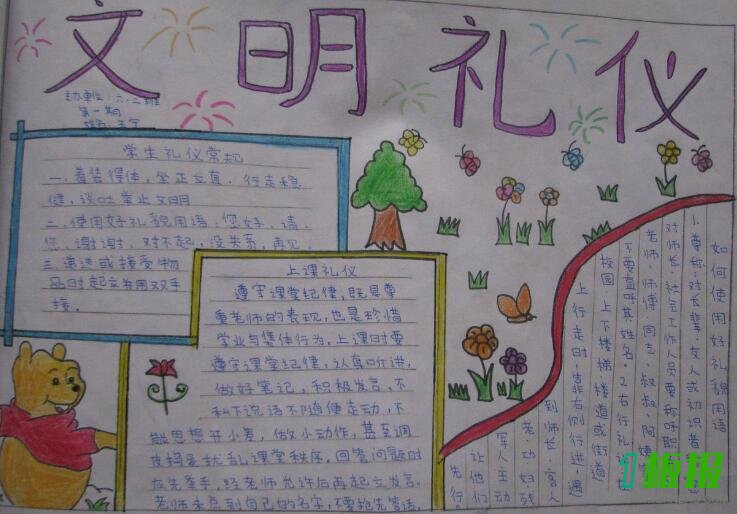 文明礼仪
主办单位：六、二班
第一期
学生礼仪常规
一、着装得体，坐正立直．行走稳
健，谈吐举止文明
二、使用好礼貌用语：您好、请、
您、谢谢、对不起、没关系、再见．
三、递送或接受物
品时起立并用双手
接。
上课礼仪
遵守课堂纪健，既是尊
重老师的表现，也是珍惜
学业与集体行为，上课时要
遵守课堂纪健，认真听讲，
做好笔记，积极发言，不
私下说话不随便走动，不
思想开小差，做小动作，甚至调
皮捣蛋扰乱课堂秩序，回答问题时
应先举手，经老师允许后再起立发言。
老师未点到自己的名字，不要抢先答话。
如何使用好礼貌用语
1、尊称：对长辈、友人或初识者
对师长、社会工作人员要称呼职
老师、师傅、同志、叔叔、阿姨
不要直呼其姓名。2右行礼
校园、上下楼梯、楼道或街道
上行走时，靠右侧行进，遇
到师长、客人
老、幼、妇、残
军人主动
让他们
先行。
板报